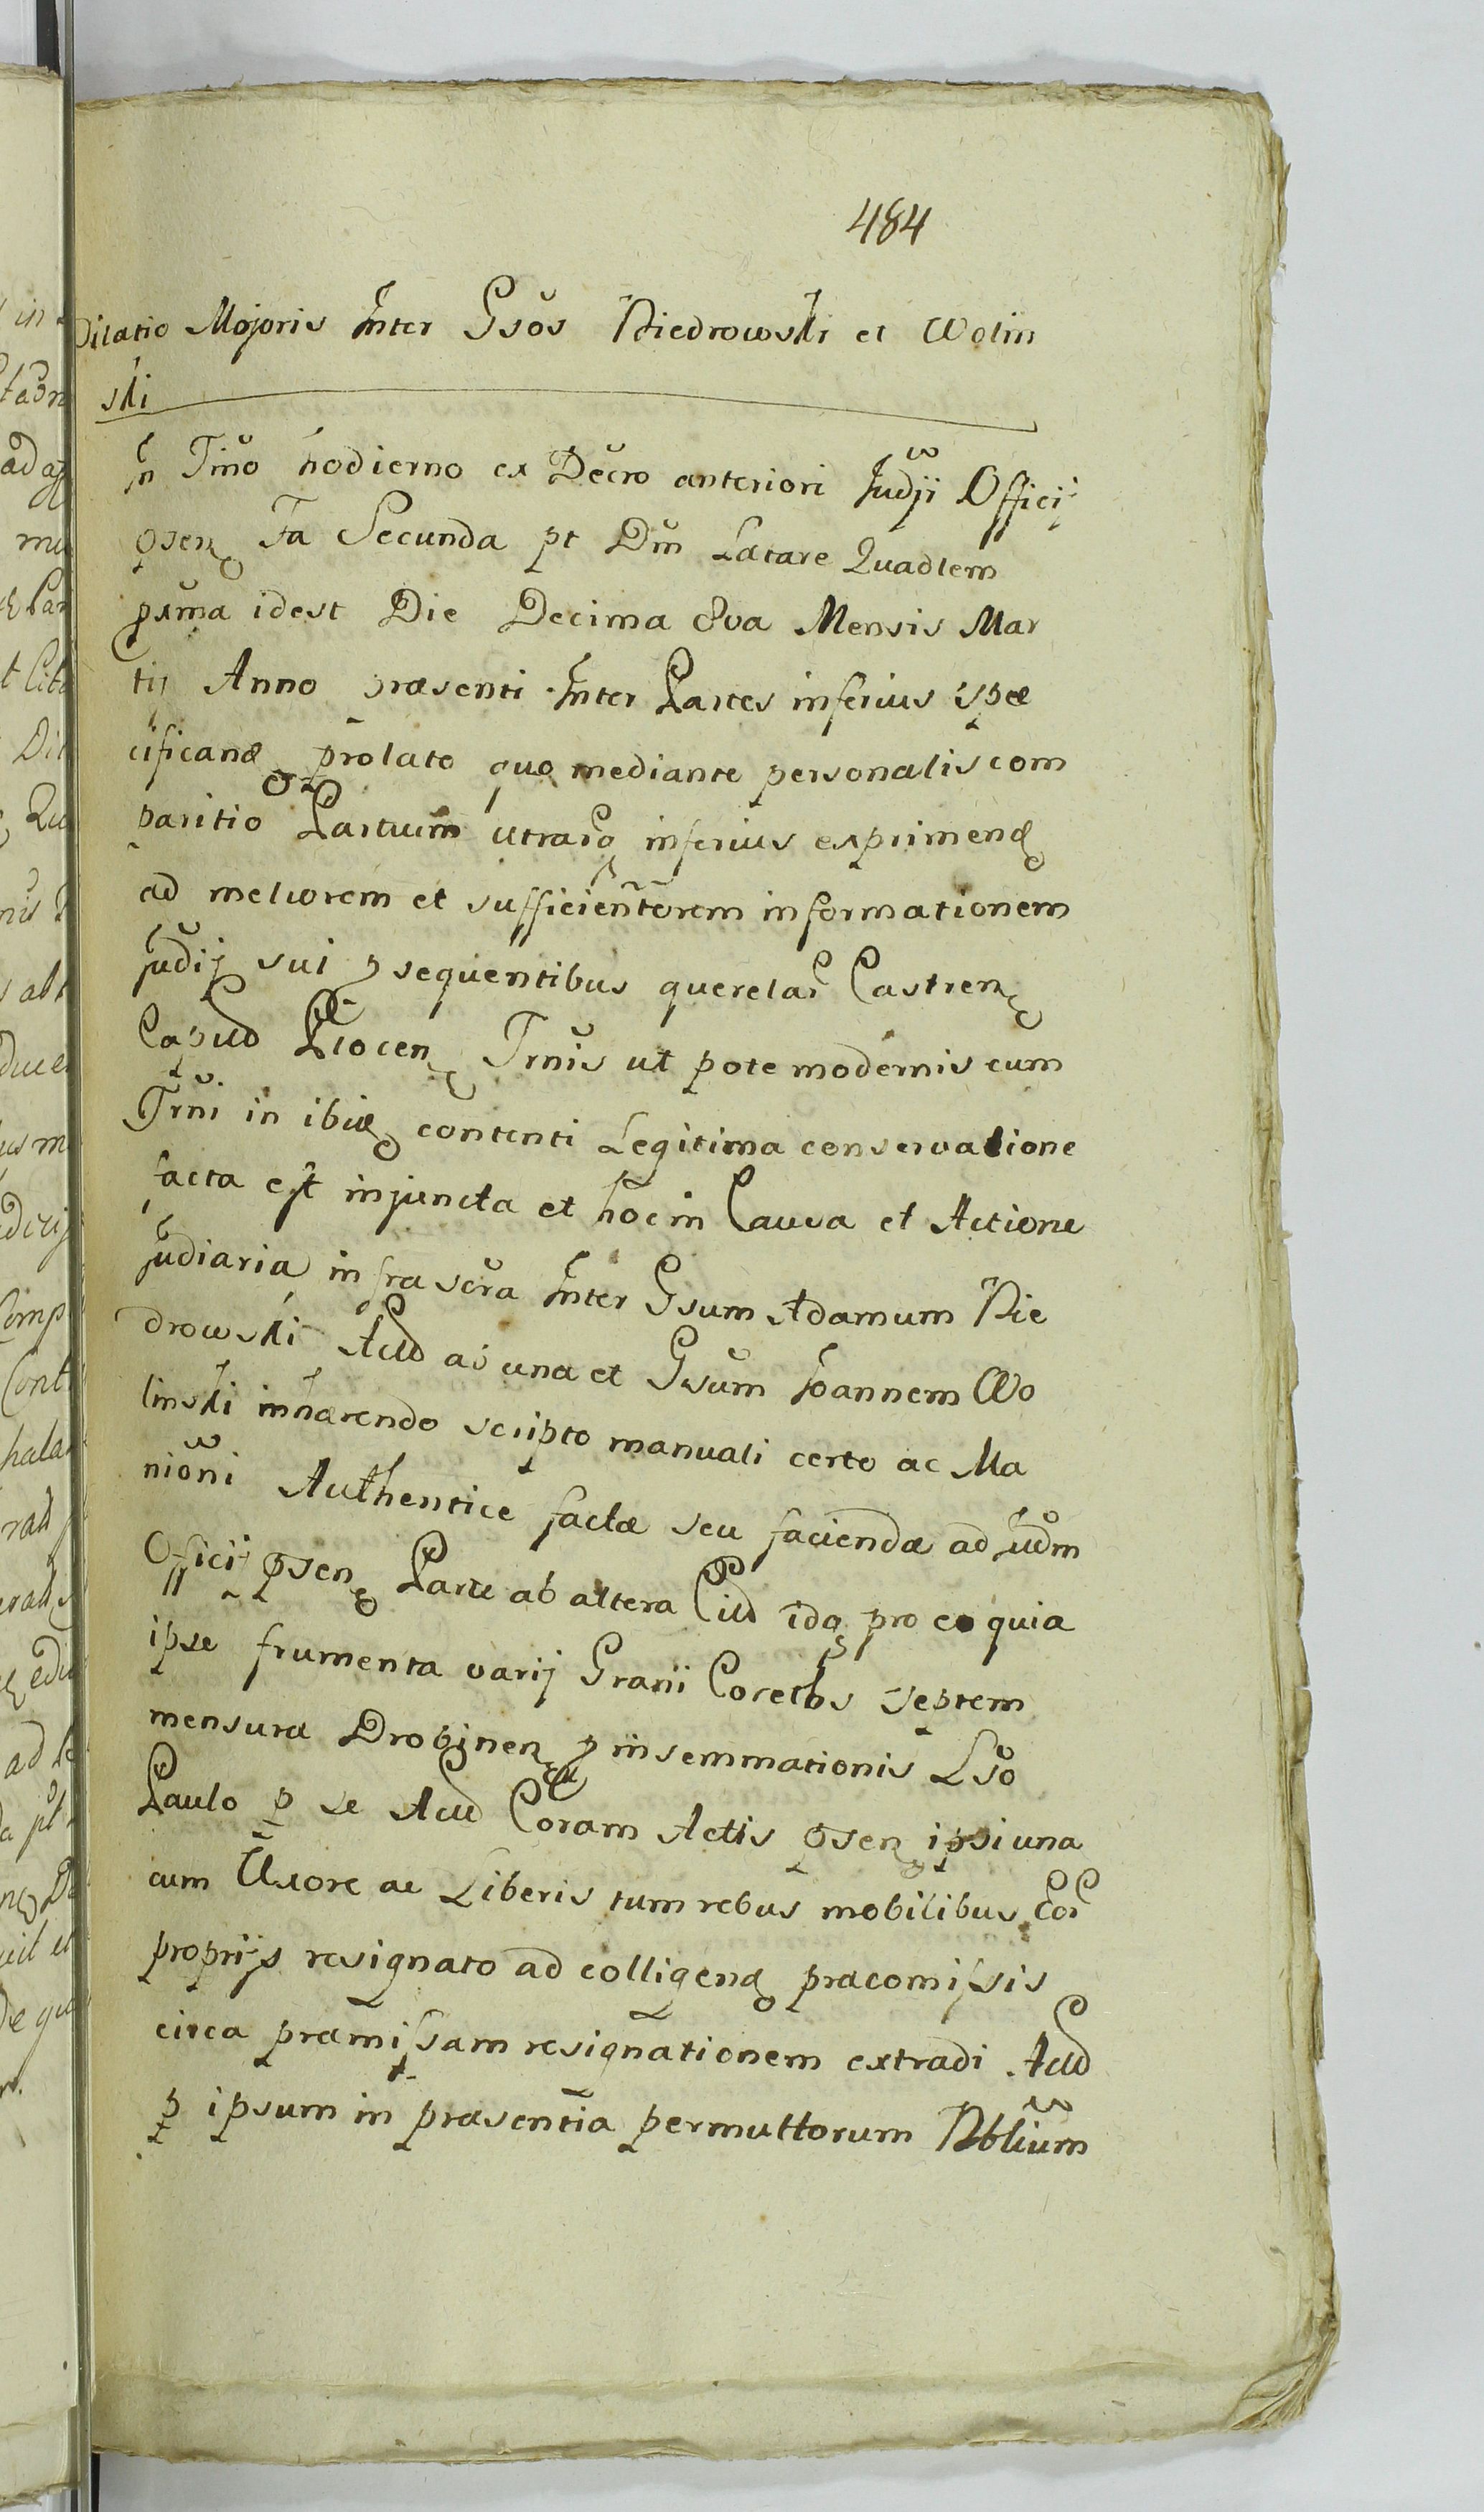 484
Dilatio Majoris Inter Gsos Niedrowski et Wolin
ski
In Tmo hodierno ex Decro anteriori Judji Officij
psen Fa Secunda pt Dm Lætare Quadlem
pxma idest Die Decima 8va Mensis Mar
tij Anno præsenti Inter Partes inferius spe
cificand prolato quo mediante personalis com
paritio Partium utrarq inferius exprimend
ad meliorem et sufficientiorem informationem
Judij sui p sequentibus querelar Castren
Capud Plocen Trnis ut pote modernis cum
Trni in ibid contenti Legitima conservatione
facta est injuncta et hoc in Causa et Actione
Judiaria infra scra Inter Gsum Adamum Nie
drowski Actd ab una et Gsum Joannem Wo
linski inhærendo scripto manuali certo ac Ma
nioni Authentice factæ seu faciendæ ad Judm
Officij psen Parte ab altera Citd idq pro eo quia
ipse frumenta varij Granii Coretos septem
mensuræ Drobinen p insemmationis Lso
Paulo p se Actd Coram Actis psen ipsi una
cum Uxore ac Liberis tum rebus mobilibus Eor
proprijs resignato ad colligend præcomissis
circa præmissam resignationem extradi Actd
p ipsum in præsentia permultorum Nblium